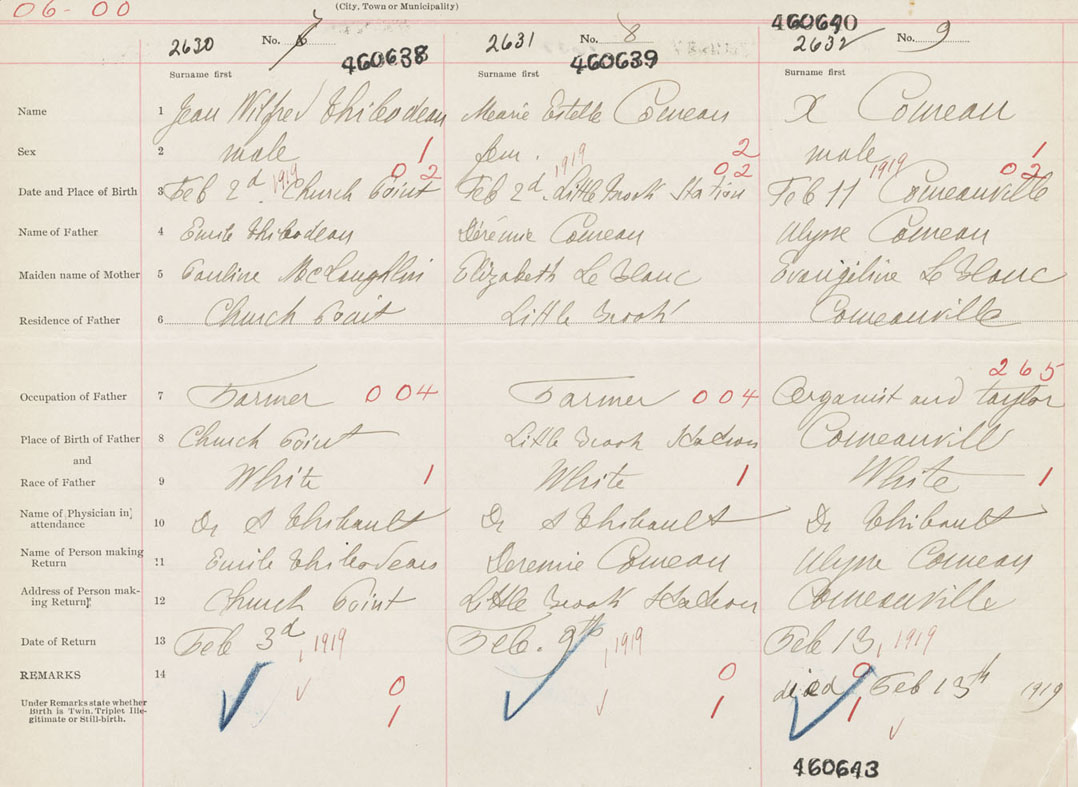 06-00
(City, Town or Municipality)
2630 No. 7 460638 2631 No. 8 460639 460640 2632 No. 9
Surname first Surname first Surname first
Name 1 Jean Wilfred Thibodeau Marie Estelle Comeau X Comeau
Sex 2 male 1 fem. 2 male 1
1919 02 1919 02 1919 02
Date and Place of Birth 3 Feb 2d Church Point Feb 2d. Little Brook Station Feb 11 Comeauville
Name of Father 4 Emile Thibodeau Dérémie Comeau Ulysse Comeau
Maiden name of Mother 5 Pauline McLaughlin Elizabeth Le Blanc Evangeline Le Blanc
Residence of Father 6 Church Point Little Brook Comeauville
265
Occupation of Father 7 Farmer 004 Farmer 004 Organist and taylor
Place of Birth of Father 8 Church Point Little Brook Station Comeauville
and
Race of Father 9 White 1 White 1 White 1
Name of Physician in attendance 10 Dr S Thibault Dr S Thibault Dr Thibault
Name of Person making Return 11 Emile Thibodeau Deremie Comeau Ulysse Comeau
Address of Person making Return 12 Church Point Little Brook Station Comeauville
Date of Return 13 Feb 3d, 1919 Feb. 9th, 1919 Feb 13, 1919
REMARKS 14 0 0 0 died Feb 13th 1919
Under Remarks state whether Birth is Twin, Triplet Illegitimate or Still-birth. 1 1 1
460643